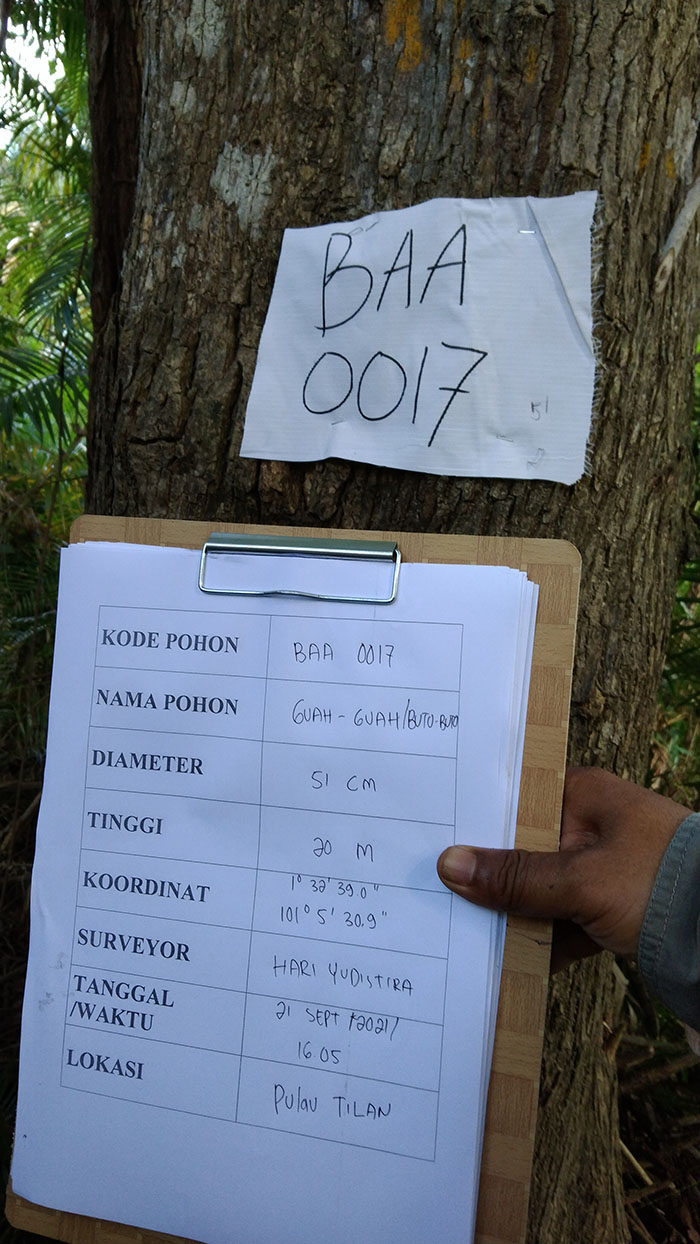 BAA
0017
51
KODE POHON BAA 0017
NAMA POHON GUAH - GUAH/BUTO-BUTO
DIAMETER 51 CM
TINGGI 20 M
KOORDINAT 1° 32' 39.0"
101° 5' 30.9"
SURVEYOR HARI YUDISTIRA
TANGGAL 21 SEPT 2021/
/WAKTU 16.05
LOKASI PULAU TILAN